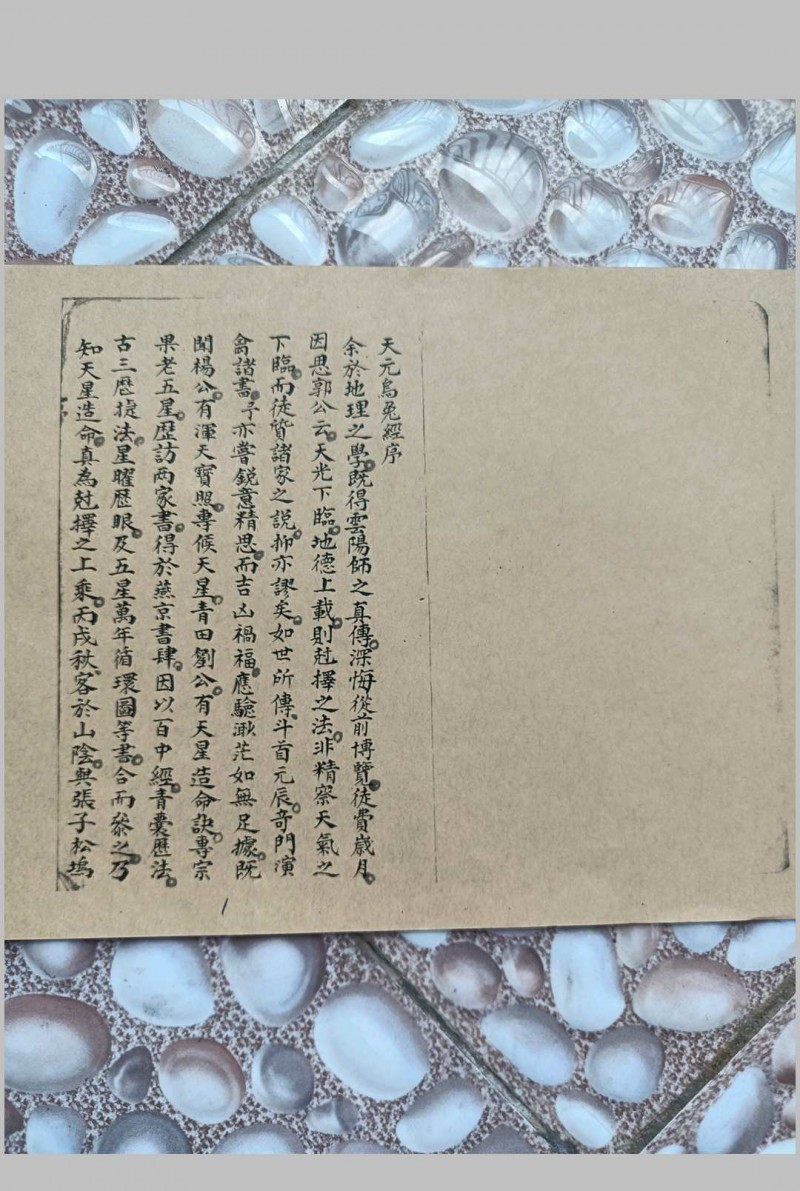 天元烏兔經序
余於地理之學。既得雲陽師之真傳。深悔從前博覽。徒費歲月。
因思郭公云。天光下臨。地德上載。則尅擇之法。非精察天氣之
下臨。而徒貿諸家之說。抑亦謬矣。如世所傳。斗首元辰。奇門演
禽諸書。予亦嘗銳意精思。而吉凶禍福。應驗渺茫如無足據。既
聞楊公。有渾天寶照。專候天星。青田劉公。有天星造命訣。專宗
果老五星。歷訪两家書。得於燕京書肆。因以百中經。青囊歷法。
古三曆捷法。星曜歷眼。及五星萬年循環圖等書。合而叅之。乃
知天星造命。真為尅擇之上乘。丙戌秋。客於山陰。與張子松塢
1